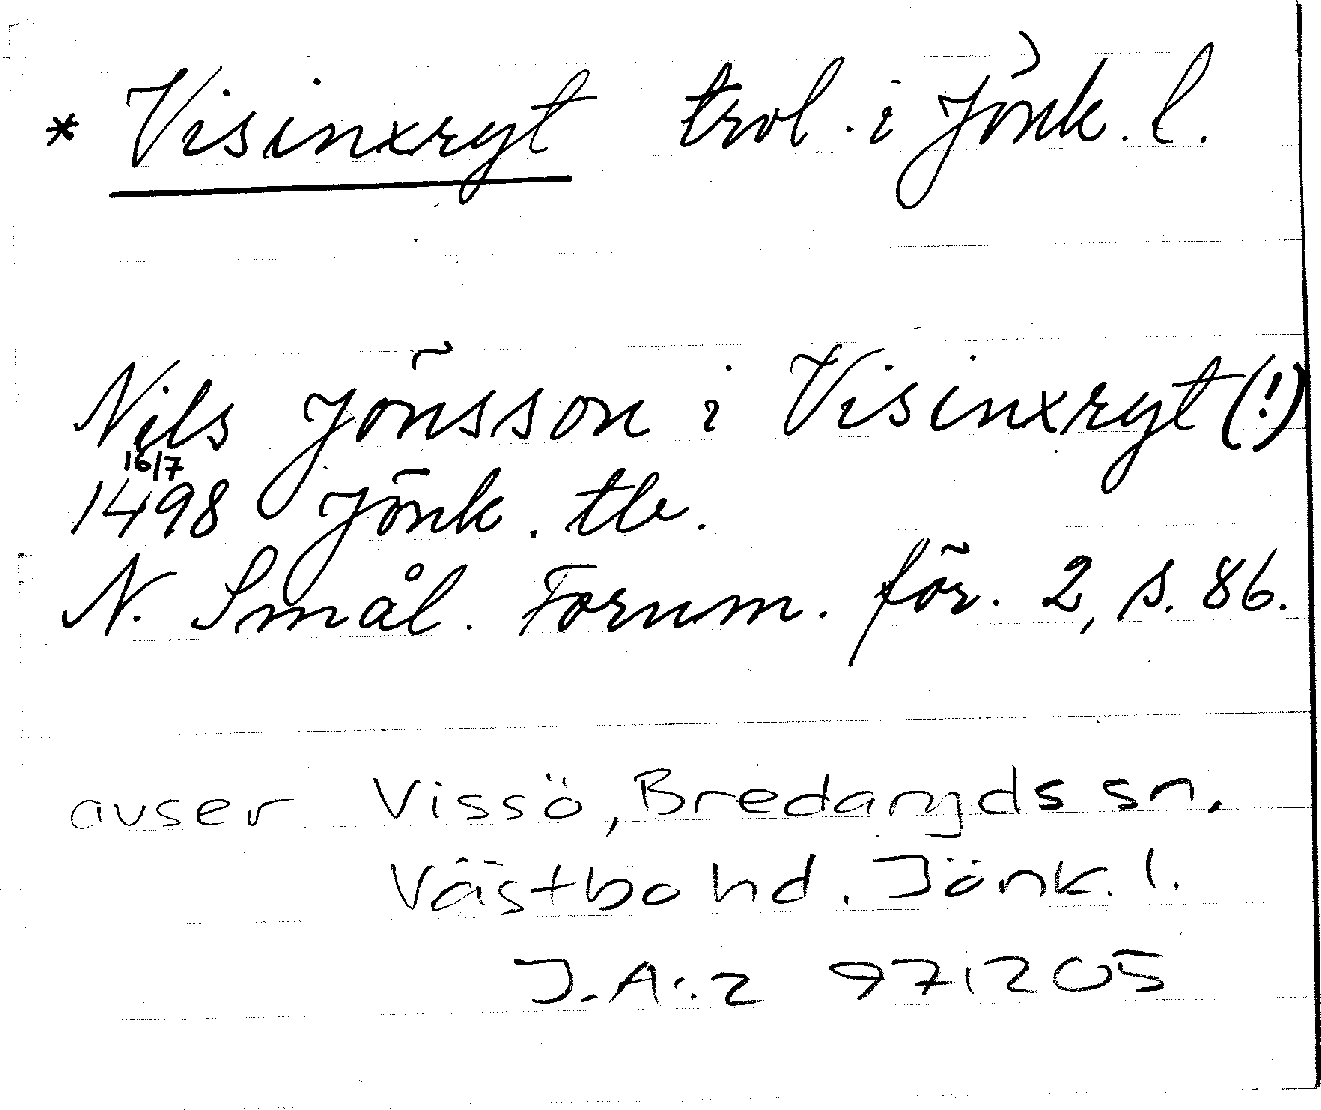 * Visinxryt trol. i Jönk. l.
Nils Jönsson i Visinxryt (!)
16/7
1498 Jönk. tb.
N. Smål. Fornm. för. 2, s. 86.
avser Vissö, Bredaryds sn.
Västbo hd. Jönk. l.
J.A:z 971205